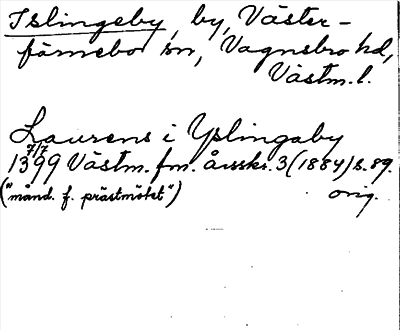 Islingeby, by, Väster-
färnebo sn, Vagnsbro hd,
Västm. l.
Laurens i Yslingaby
7/7
1399 Västm. fm. årsskr. 3 (1884) s. 89.
("månd. f. prästmötet") orig.